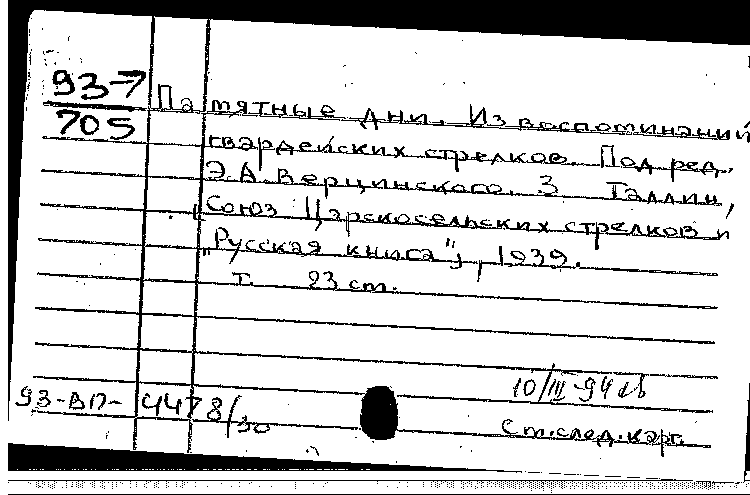 93-7
705
Памятные дни. Из воспоминаний
гвардейских стрелков. Под ред.
Э.А.Верцинского. 3 Таллин,
[Союз Царскосельских стрелков и
„Русская книга"], 1939.
т. 23 cm.
10/III-94
93-ВП- 4478/30
См.след.карт.